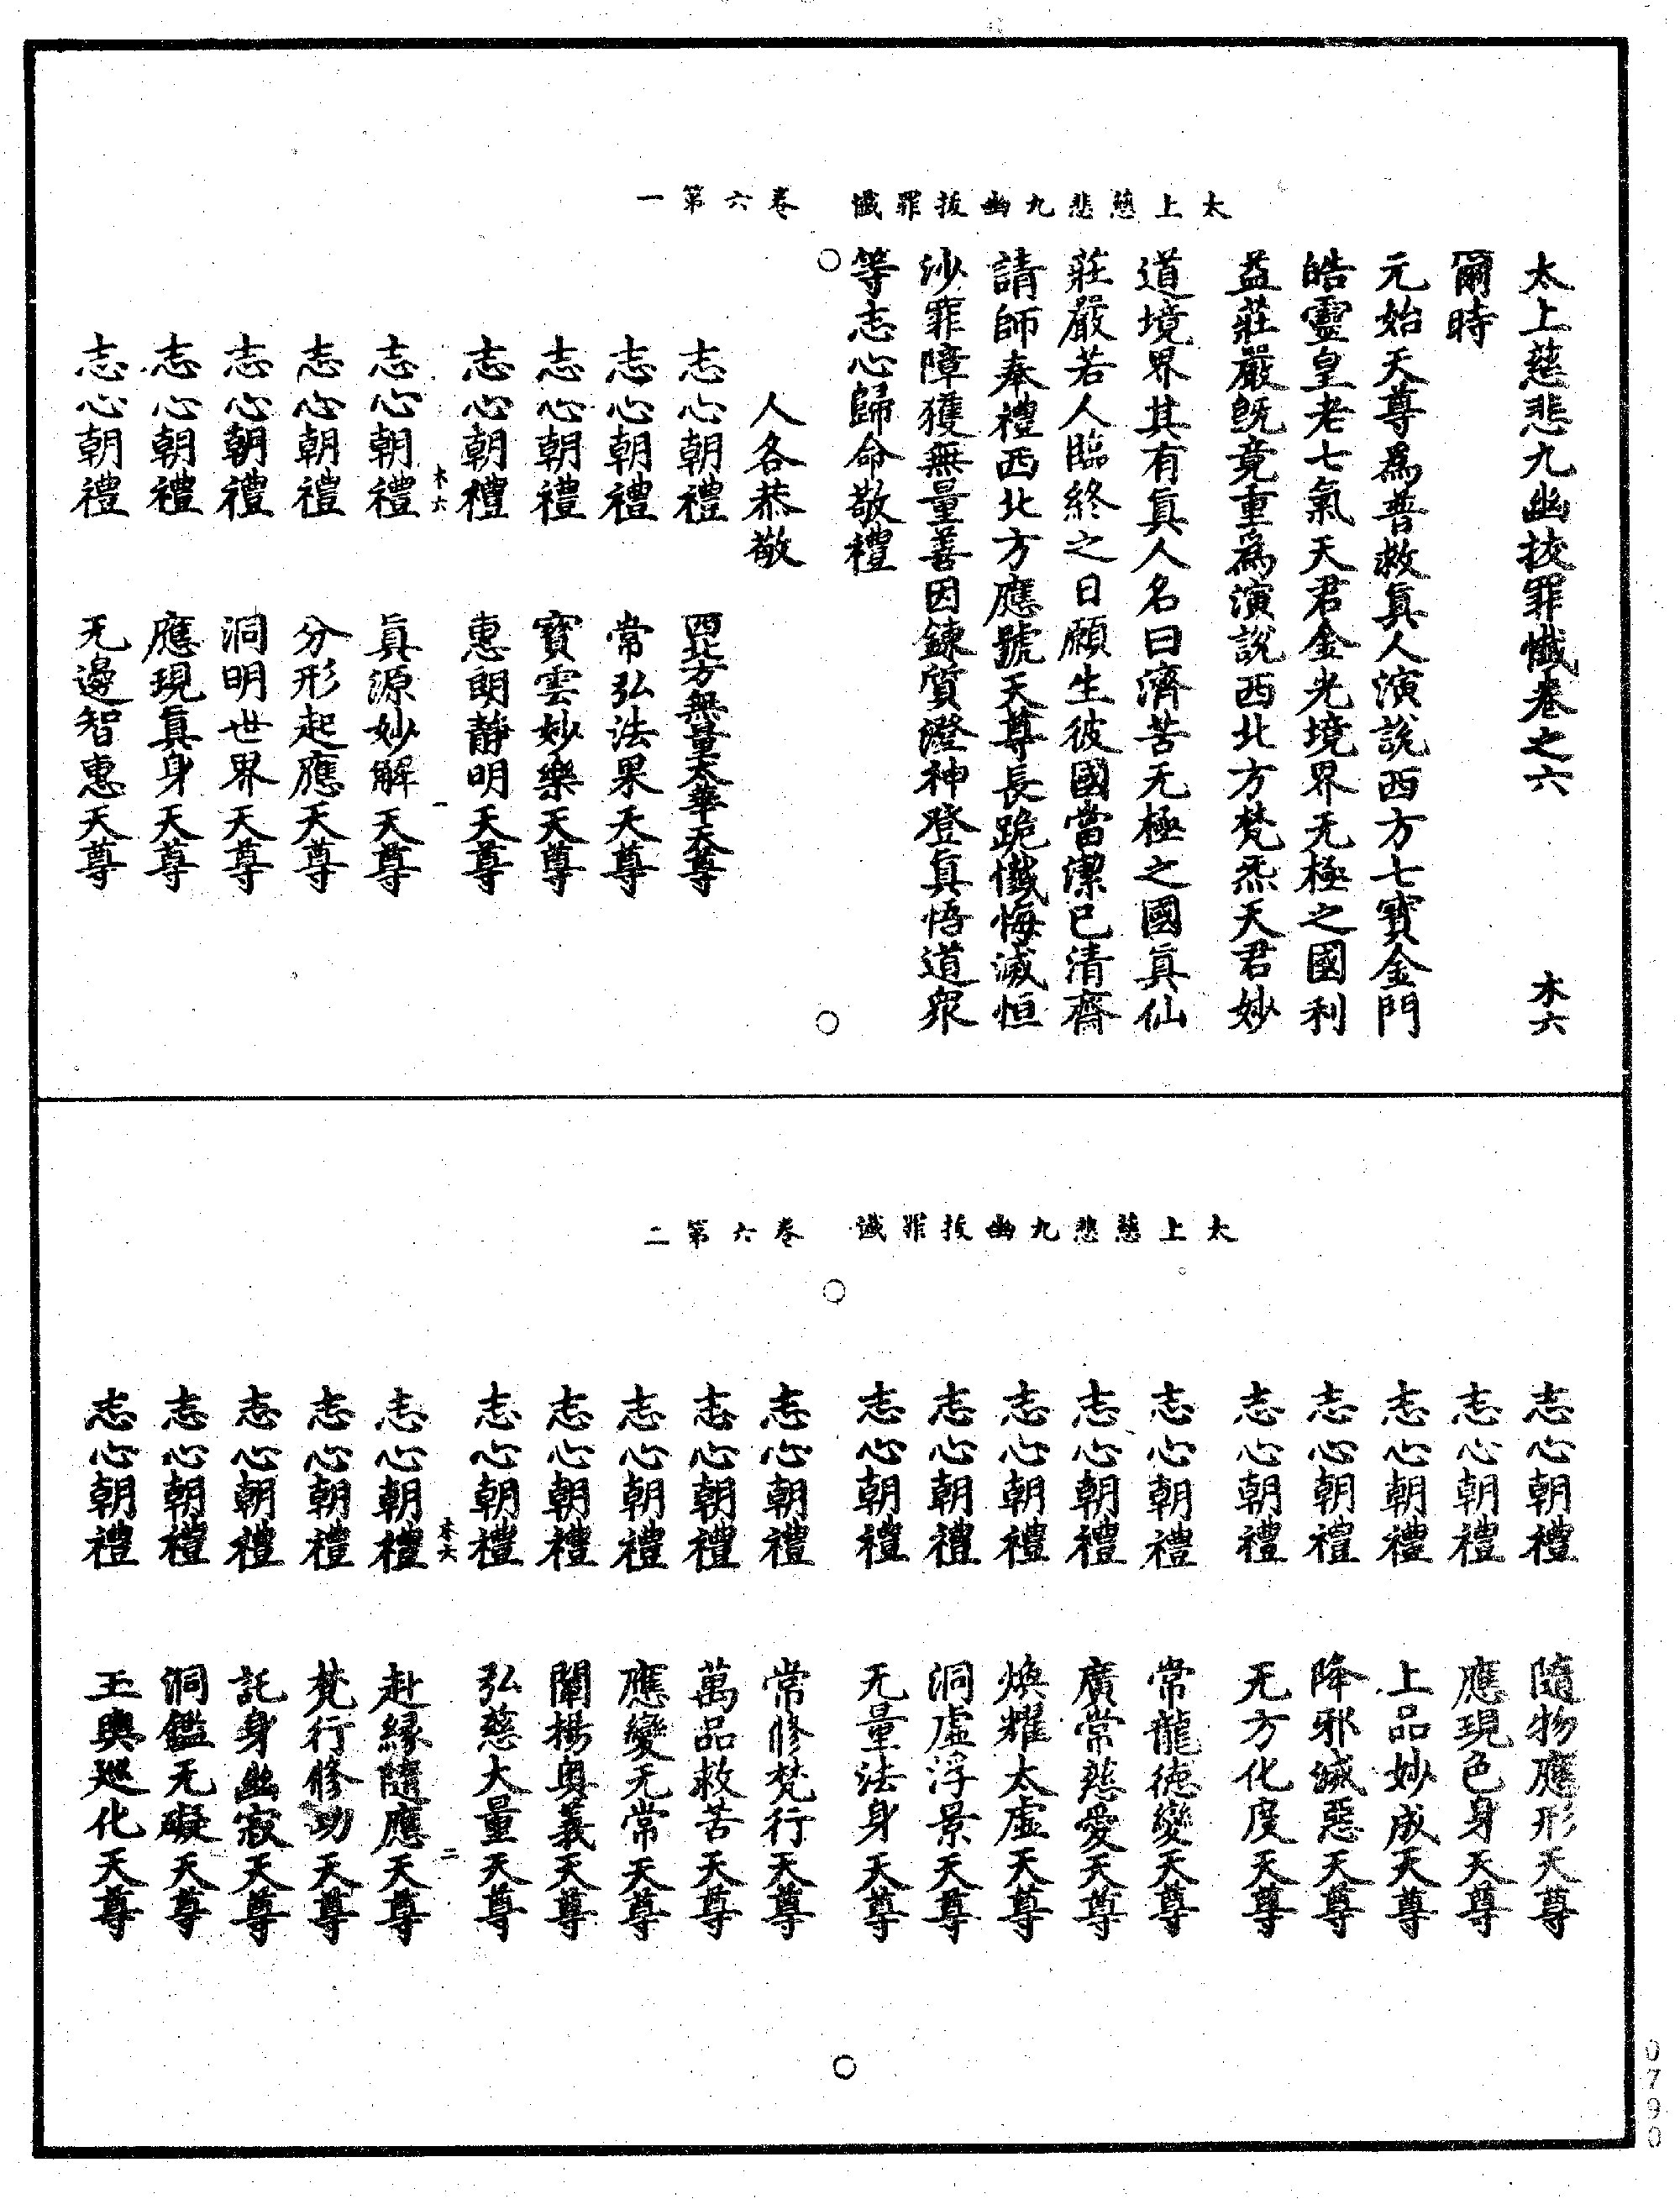 太上慈悲九幽拔罪懺　卷六第一
太上慈悲九幽拔罪懺卷之六　木六
爾時
元始天尊爲普救眞人演說西方七寶金門
皓靈皇老七氣天君金光境界无極之國利
益莊嚴旣竟重爲演說西北方梵炁天君妙
道境界其有眞人名曰濟苦无極之國眞仙
莊嚴若人臨終之日願生彼國當潔已清齋
請師奉禮西北方應號天尊長跪懺悔滅恒
沙罪障獲無量善因鍊質澄神登眞悟道衆
等志心歸命敬禮
人各恭敬
志心朝禮　西北方無量太華天尊
志心朝禮　常弘法果天尊
志心朝禮　寶雲妙樂天尊
志心朝禮　惠朗靜明天尊
木六　一
志心朝禮　眞源妙解天尊
志心朝禮　分形起應天尊
志心朝禮　洞明世界天尊
志心朝禮　應現眞身天尊
志心朝禮　无邊智惠天尊
太上慈悲九幽拔罪懺　卷六第二
志心朝禮　隨物應形天尊
志心朝禮　應現色身天尊
志心朝禮　上品妙成天尊
志心朝禮　降邪滅惡天尊
志心朝禮　无方化度天尊
志心朝禮　常龍德變天尊
志心朝禮　廣常慈愛天尊
志心朝禮　煥耀太虛天尊
志心朝禮　洞虛浮景天尊
志心朝禮　无量法身天尊
志心朝禮　常修梵行天尊
志心朝禮　萬品救苦天尊
志心朝禮　應變无常天尊
志心朝禮　闡揚奧義天尊
志心朝禮　弘慈大量天尊
木六　二
志心朝禮　赴緣隨應天尊
志心朝禮　梵行修功天尊
志心朝禮　託身幽寂天尊
志心朝禮　洞鑑无礙天尊
志心朝禮　玉輿巡化天尊
0790